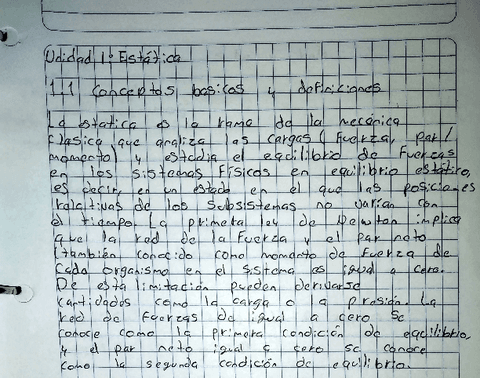 Unidad 1: Estática
1.1 conceptos basicos y definiciones
La estatica es la rama de la mecánica
clasica que analiza las cargas (fuerza, par/
momento) y estudia el equilibrio de fuerzas
en los sistemas físicos en equilibrio estático,
es decir, en un estado en el que las posiciones
relativas de los subsistemas no varian con
el tiempo. La primera ley de Newton implica
que la red de la fuerza y el par neto
(también conocido como momento de fuerza de
cada organismo en el sistema es igual a cero.
De esta limitación pueden derivarse
cantidades como la carga o la presión. La
red de fuerzas de igual a cero se
conoce como la primera condición de equilibrio,
y el par neto igual a cero se conoce
como la segunda condición de equilibrio.